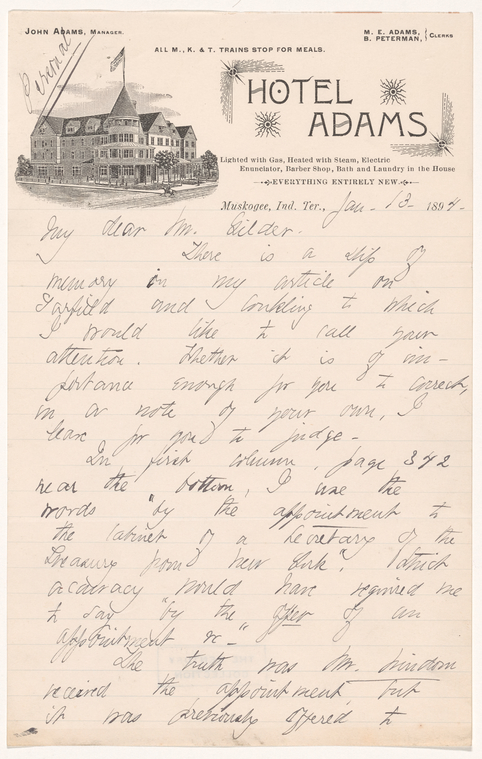 JOHN ADAMS, MANAGER.
M. E. ADAMS,
B. PETERMAN, } CLERKS
ALL M., K. & T. TRAINS STOP FOR MEALS.
Personal
HOTEL
ADAMS
Lighted with Gas, Heated with Steam, Electric
Enunciator, Barber Shop, Bath and Laundry in the House
EVERYTHING ENTIRELY NEW.
Muskogee, Ind. Ter., Jan - 13 - 1894 -
My dear Mr. Gilder.
There is a slip of
memory in my article on
Garfield and Conkling to which
I would like to call your
attention. Whether it is of im-
portance enough for you to correct,
in a note of your own, I
leave for you to judge -
In first column, page 342
near the bottom, I use the
words "by the appointment to
the cabinet of a Secretary of the
Treasury from New York". Strict
accuracy would have required me
to say "by the offer of an
appointment &c - "
The truth was Mr. Windom
received the appointment, but
it was previously offered to